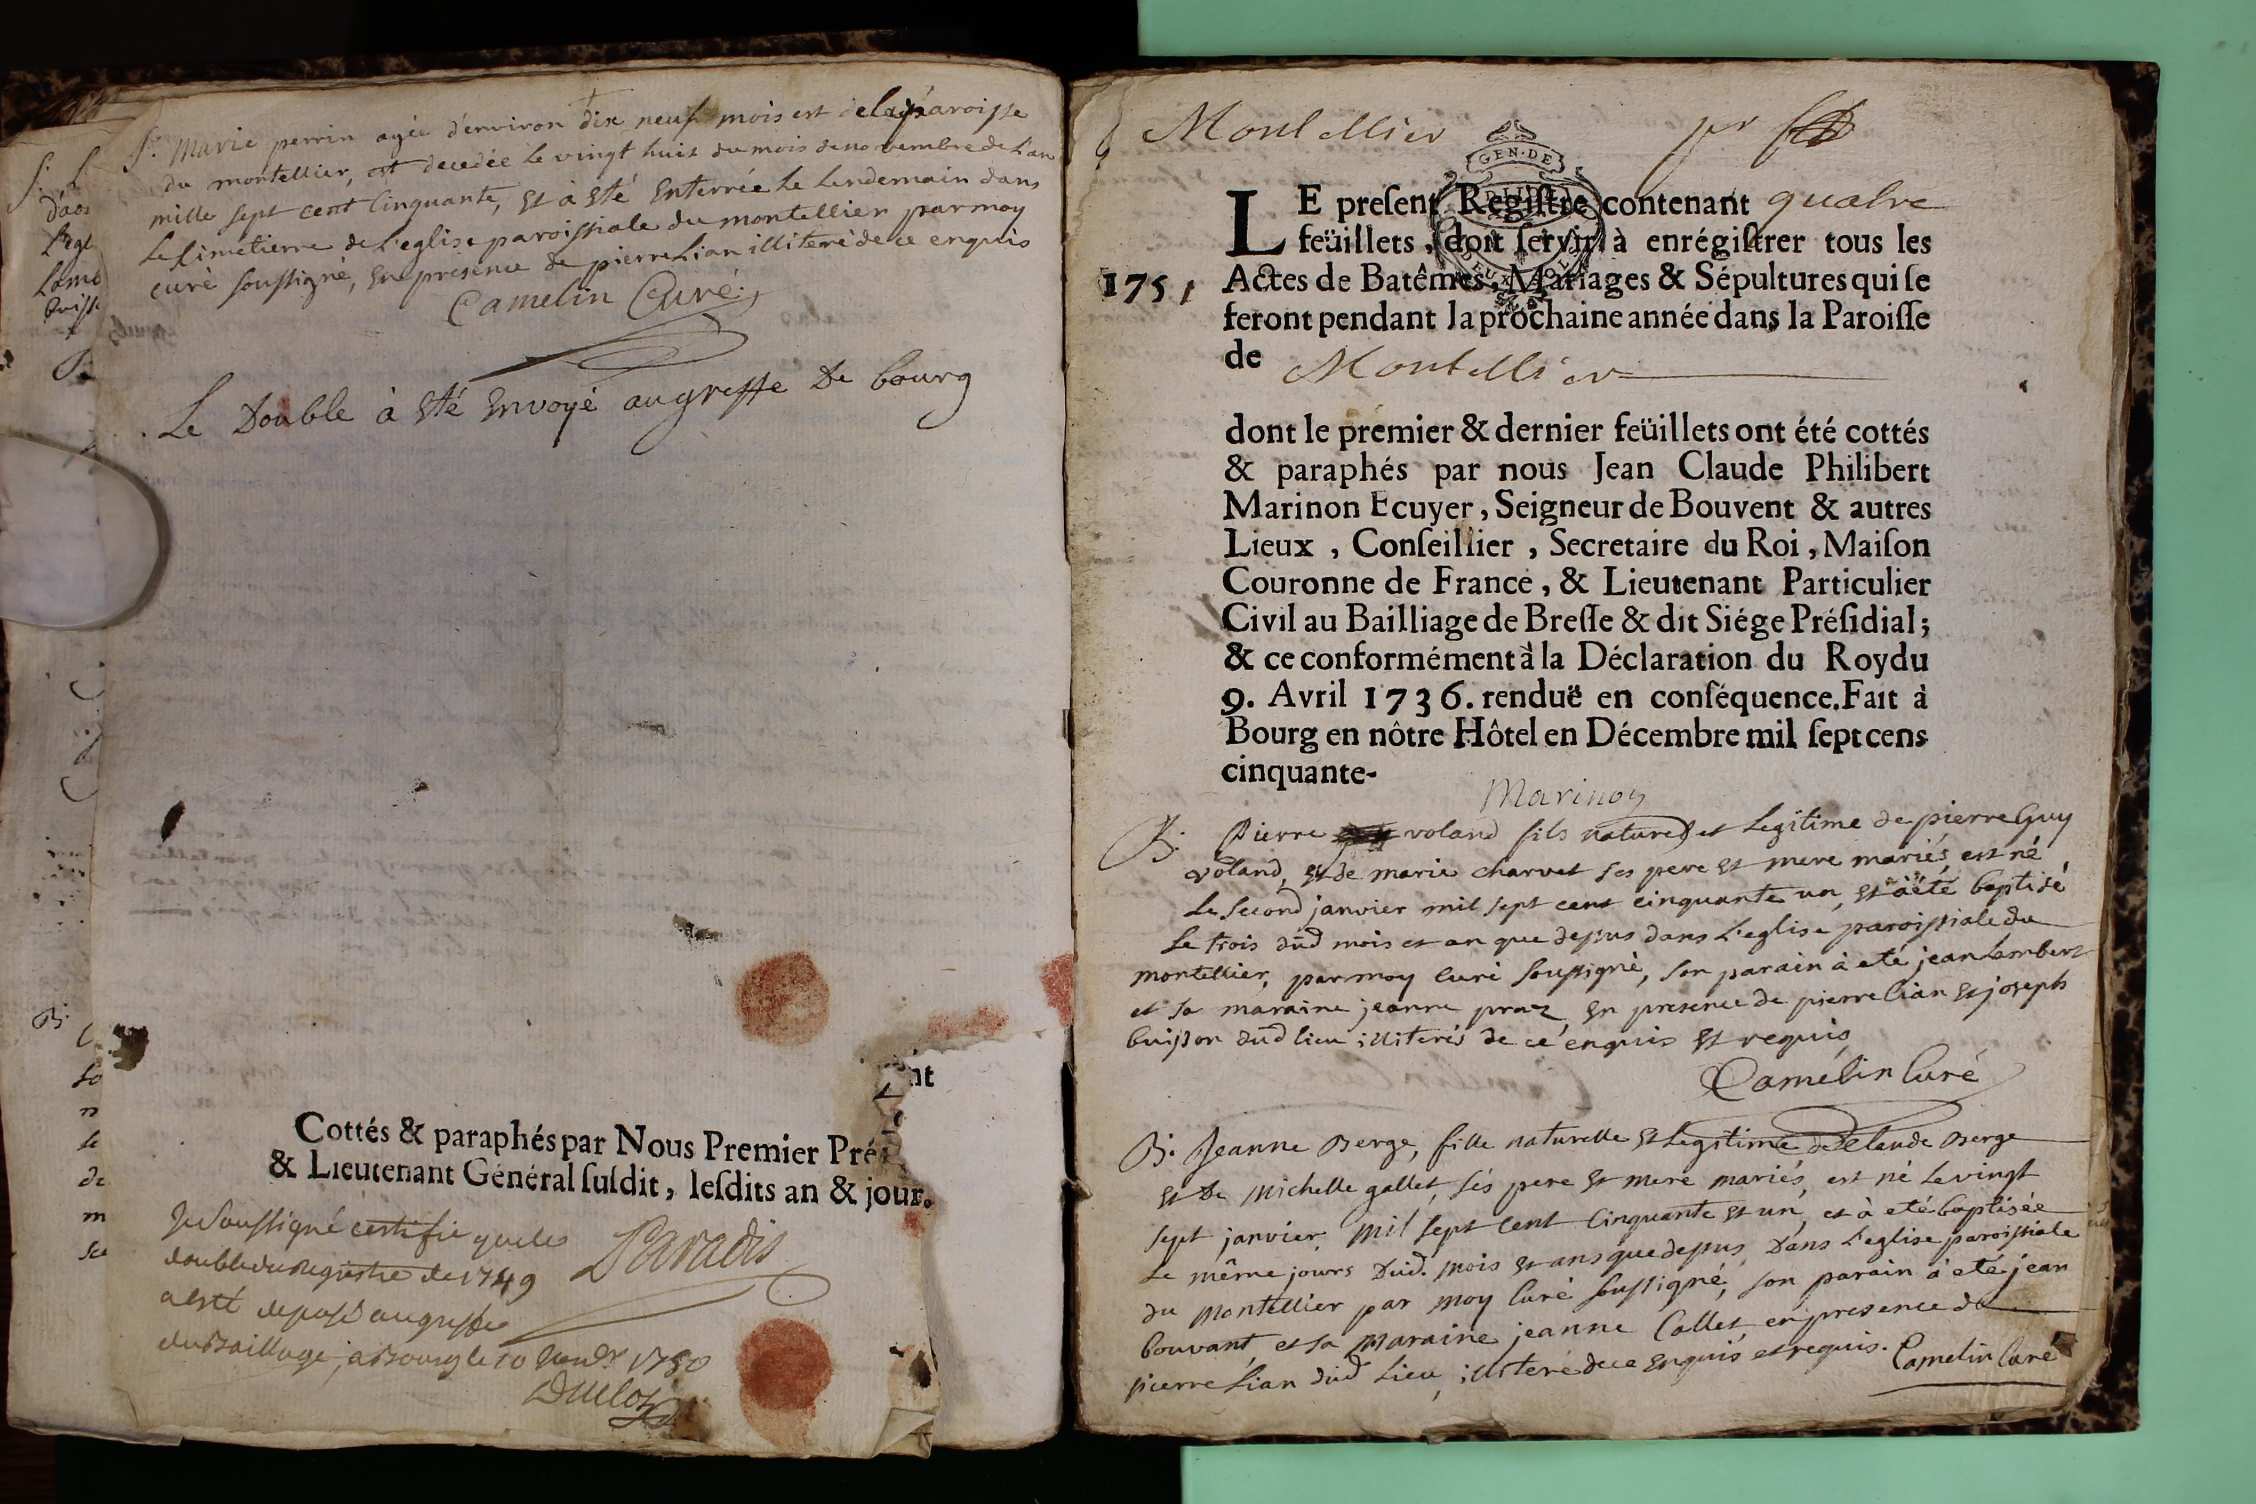 S. Marie perrin agée d'environ dix neuf mois est de la paroisse
du montellier, est decedée le vingt huit du mois de novembre de l'an
mille sept cent Cinquante, Et à Eté Enterrée le Lendemain dans
le Simetierre de L'eglise paroissiale du montellier par moy
curé soussigné, En presence de pierre Lian illiteré de ce enquis
Camelin Curé
Le Double à Eté Envoyé au greffe De bourg
nt
Cottés & paraphés par Nous Premier Pré
& Lieutenant Général ſuſdit, leſdits an & jour.
Je Soussigné certifie que le
Paradis
double du Registre de 1749
a esté deposé au greffe
du Baillage, a Bourg le 10 1750
Duclos
B.
Montellier
per
GEN·DE
DEUX SOLS
LE preſent Regiſtre contenant quatre
feüillets, doit ſervir à enrégiſtrer tous les
1751
Actes de Batêmes, Mariages & Sépultures qui ſe
feront pendant la prochaine année dans la Paroiſſe
de Montellier
dont le premier & dernier feüillets ont été cottés
& paraphés par nous Jean Claude Philibert
Marinon Ecuyer, Seigneur de Bouvent & autres
Lieux, Conſeillier, Secretaire du Roi, Maiſon
Couronne de France, & Lieutenant Particulier
Civil au Bailliage de Breſſe & dit Siége Préſidial;
& ce conformément à la Déclaration du Roy du
9. Avril 1736. renduë en conſéquence. Fait à
Bourg en nôtre Hôtel en Décembre mil ſept cens
cinquante-
Marinon
B. Pierre voland fils naturel et Legitime de pierre Guy
voland, Et de marie charvet ses pere Et mere mariés, est né
Le Second janvier mil sept cent cinquante un, Et à été baptisé
Le trois dud mois et an que depus dans L'eglise paroissiale du
montellier, par moy curé soussigné, son parain à eté jean Lambert
et sa maraine jeanne praz, En presence de pierre Lian Et joseph
buisson dud lieu illiterés de ce enquis Et requis
Camelin Curé
B. Jeanne Berge, fille naturelle Et Legitime de Claude Berge
Et De Michelle gallet, sés pere Et mere mariés, est né Le vingt
sept janvier, Mil sept Cent Cinquante Et un, et à eté baptisée
Le même jours Dud. Mois Et ans que depus, Dans L'eglise paroissiale
du Montellier par Moy Curé soussigné, son parain à eté jean
bouvant, et sa Maraine jeanne Collet, en presence de
pierre Lian dud Lieu, illiteré de ce Enquis et requis. Camelin Curé